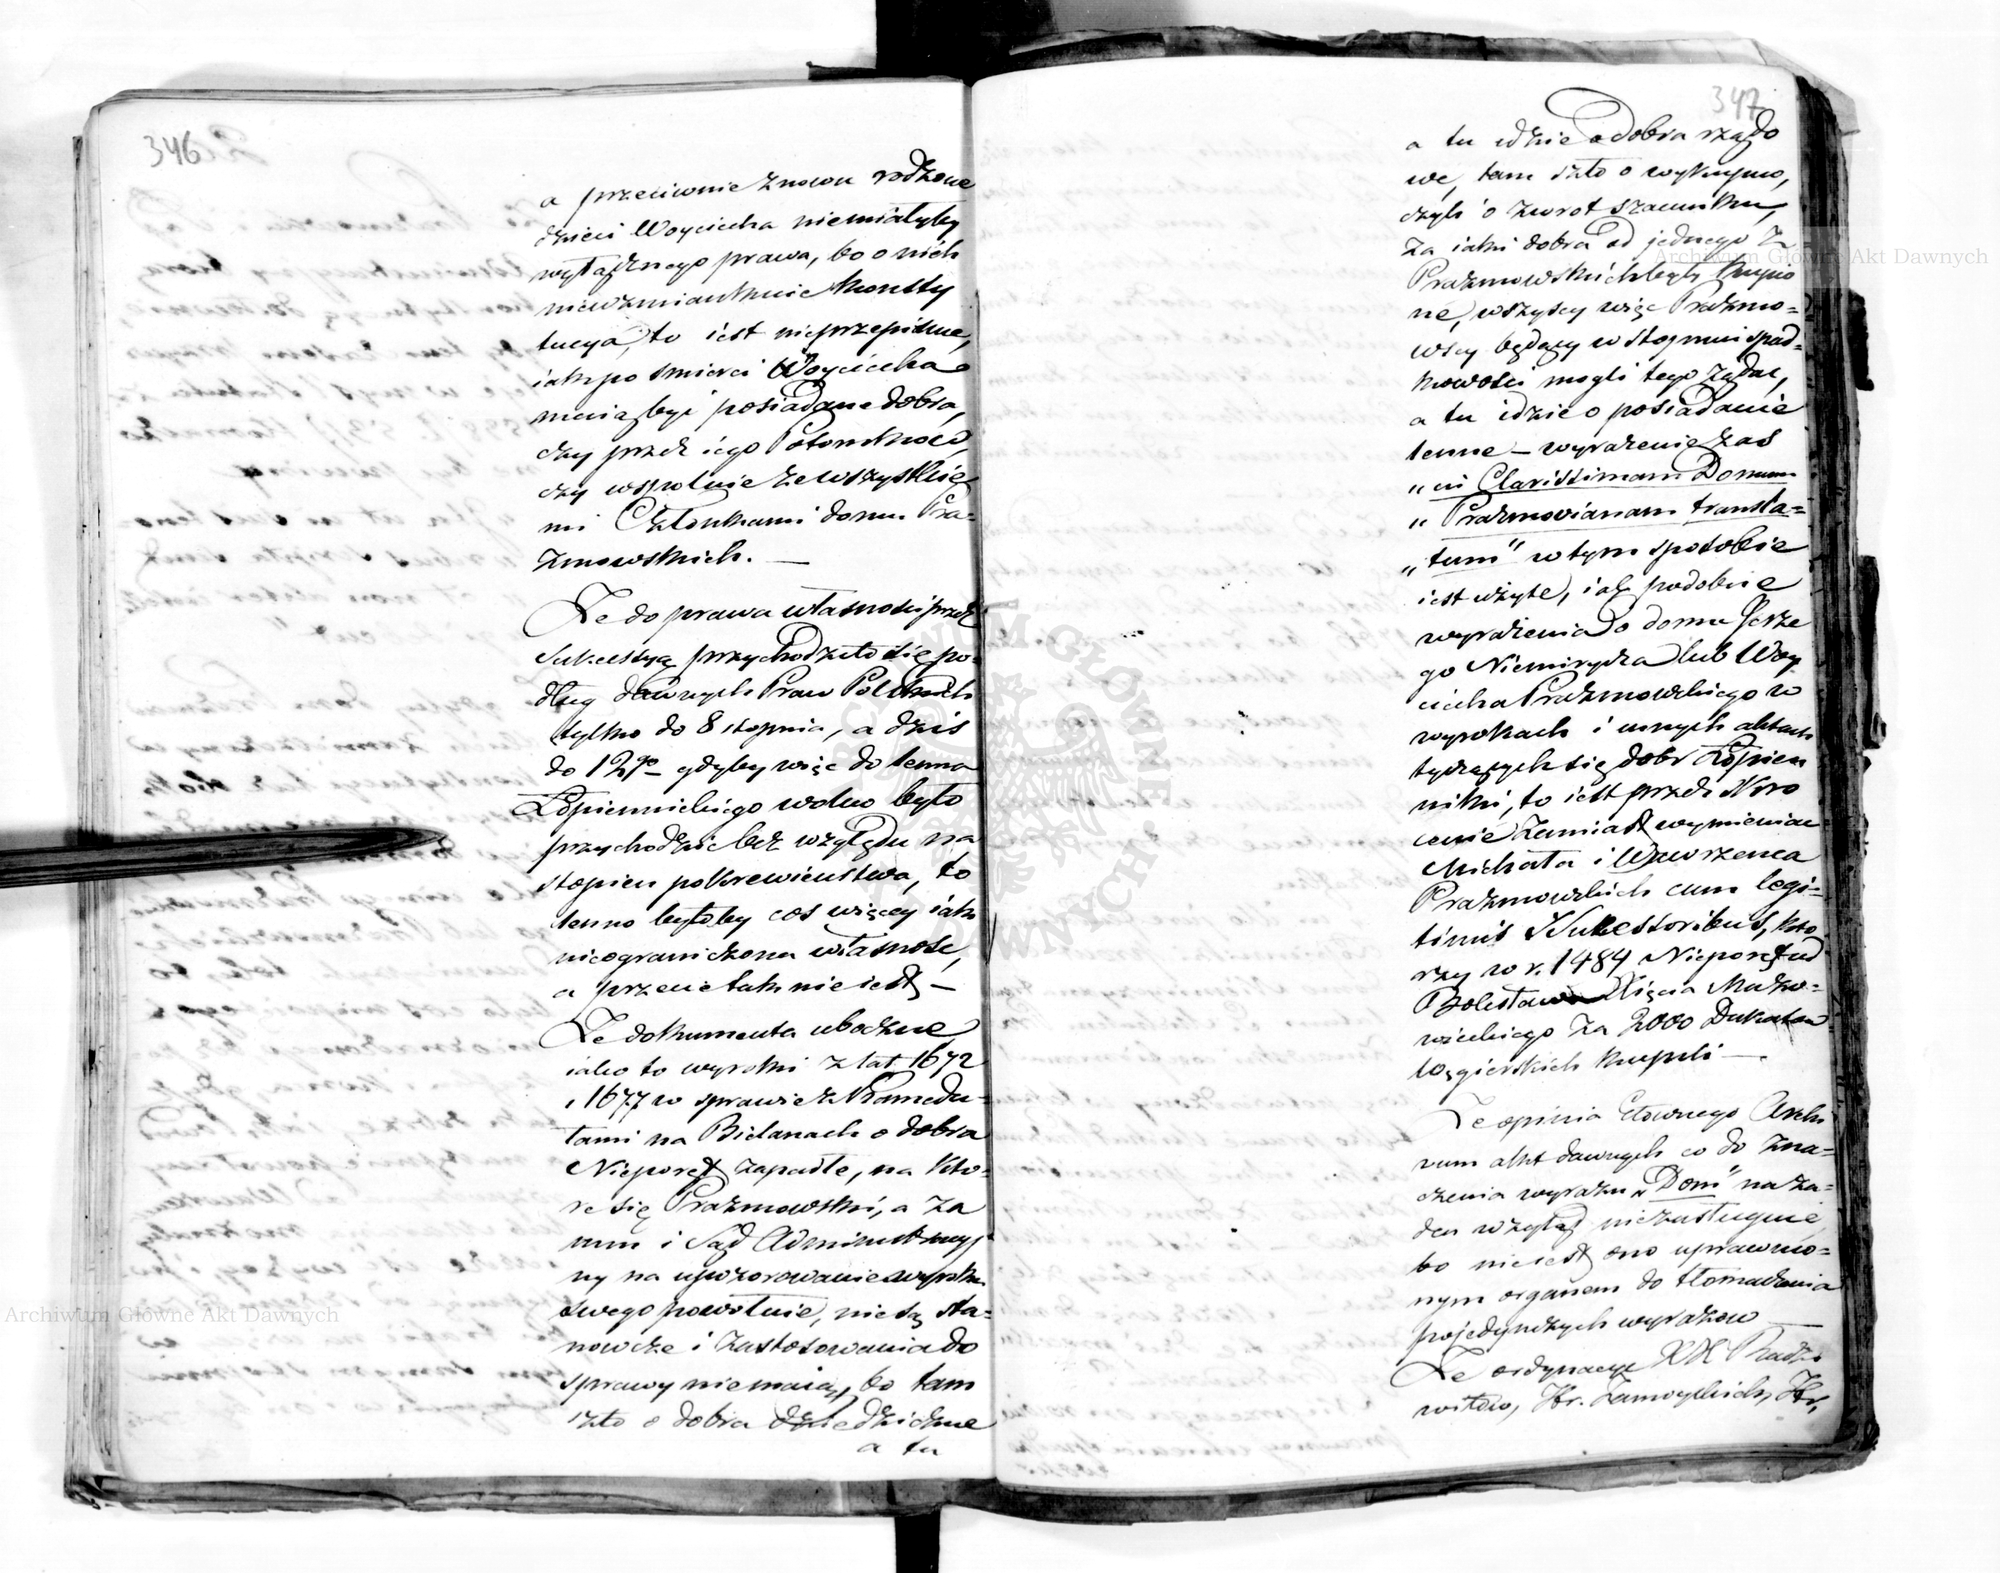 346
a przeciwnie znowu rodzone
dzieci Woyciecha niemiałyby
wyłącznego prawa, bo o nich
niewzmiankuie konsty
tucya, to iest nieprzepisuie,
iak po smierci Woyciecha
maią bydź posiadane dobra,
czy przez iego Potomkow,
czy wspolnie ze wszystkie
mi Członkami domu Pra-
zmowskich. —
Ze do prawa własnosci przez
Sukcessyą przychodziło się po-
dług dawnych Praw Polskich
tylko do 8 stopnia, a dziś
do 12go — gdyby więc do lenna
Łopiennickiego wolno było
przychodzić bez względu na
stopien pokrewieństwa, to
lenno byłoby cos więcey iak
nieograniczona własność,
a przecie tak nie iest —
Ze dokumenta uboczne
iako to wyroki z lat 1672
i 1677 w sprawie z Kamedu-
łami na Bielanach o dobra
Nieporęt zapadłe, na kto-
re się Prażmowski, a za
nim i Sąd Administracyj
ny na upozorowanie wyroku
swego powołuie, nie są sta-
nowcze i zastosowania do
sprawy niemaią, bo tam
szło o dobra dziedziczne
a tu
347
a tu idzie o dobra rządo
we, tam szło o wykupno,
czyli o zwrot szacunku,
za iaki dobra od jednego z
Prażmowskich były kupio
ne, wszyscy więc Prażmo-
wscy będący w stopniu spad-
kowości mogli tego żądać,
a tu idzie o posiadanie
lenne — wyrażenie zaś
„in Clarissimam Domum
„Prażmovianam transla-
„tum" w tym sposobie
iest użyte, iak podobne
wyrażenia o domu Jerze
go Niemirycza lub Woy
ciecha Prażmowskiego w
wyrokach i innych aktach
tyczących się dobr Łopien
niki, to iest przez skro
cenie zamiast wymieniać
Michała i Wawrzenca
Prażmowskich cum legi-
timis Sukcessoribus, kto
rzy w r. 1484 Nieporęt od
Bolesława Xięcia Mazo-
wieckiego za 2000 Dukatow
Węgierskich kupili —.
Ze opinia Głownego Archi
wum akt dawnych co do zna-
czenia wyrazu „Dom" na ża-
den wzgląd niezasługuie,
bo nie iest ono uprawnio-
nym organem do tłomaczenia
pojedynczych wyrazow —
Ze ordynacye XX Radzi
wiłłow, Hr. Zamoyskich, Hr.
Archiwum Główne Akt Dawnych
Archiwum Główne Akt Dawnych
ARCHIWUM GŁÓWNE AKT DAWNYCH